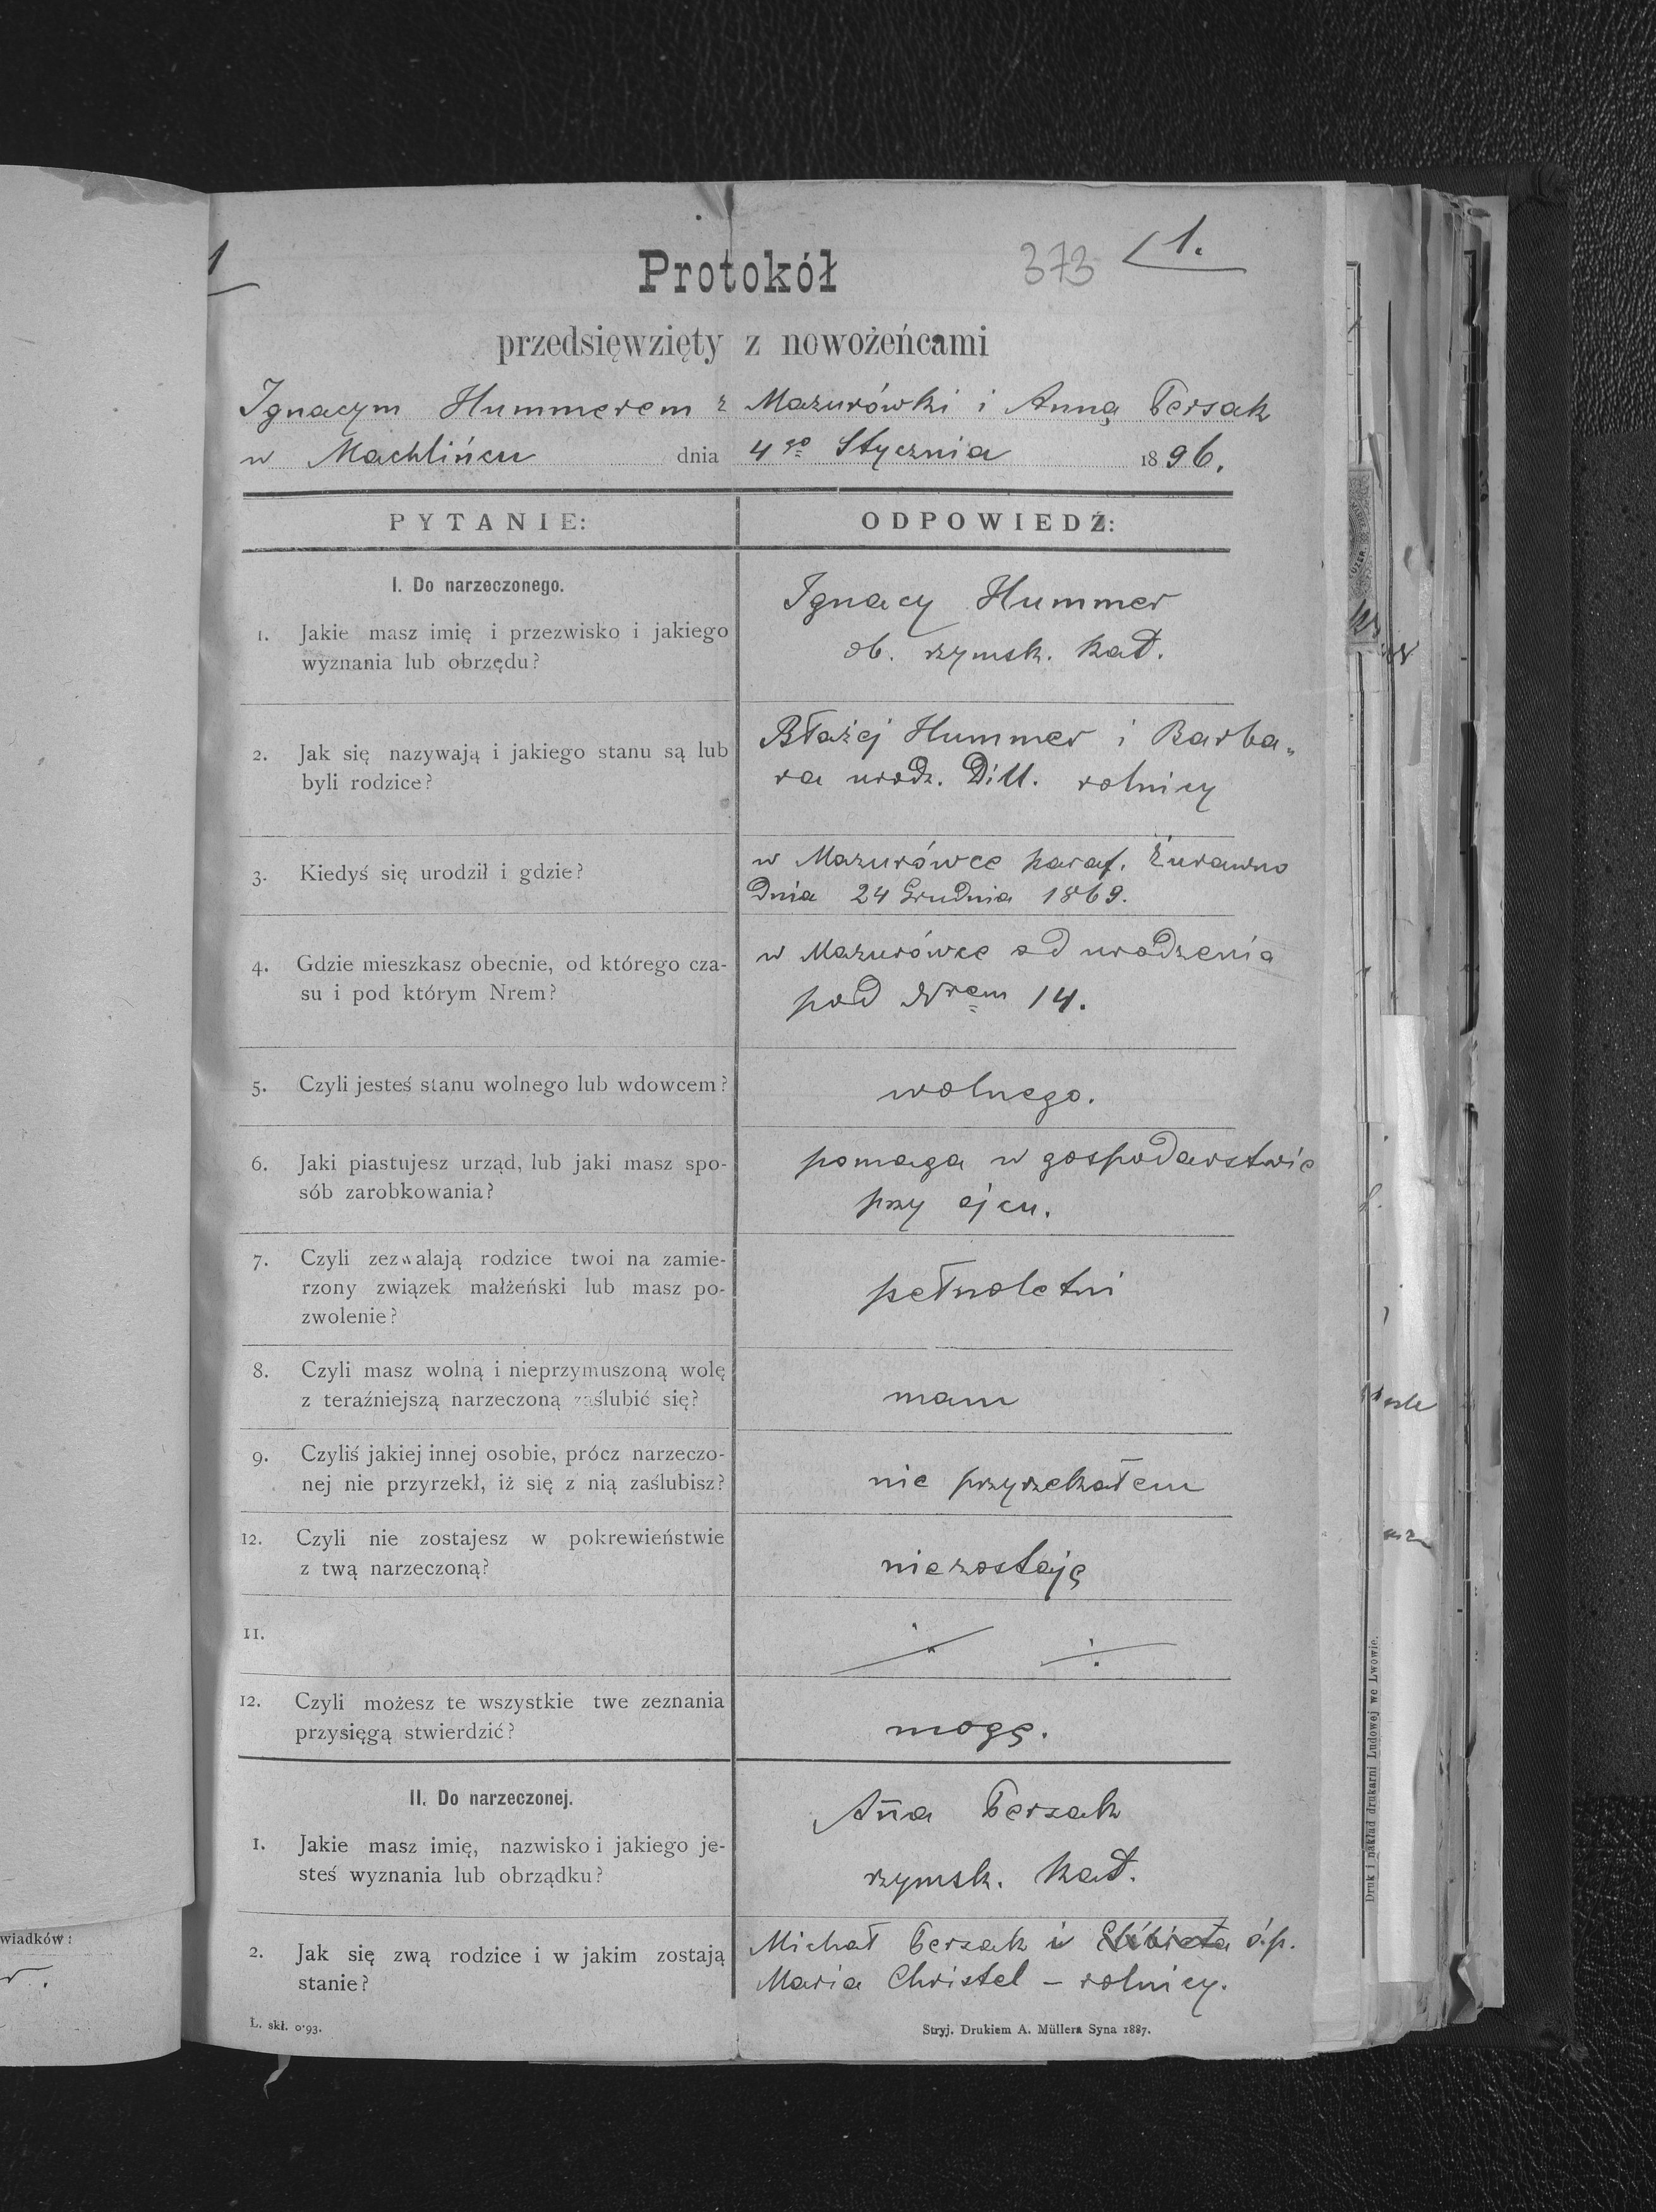 1
373
1.
Protokół
przedsięwzięty z nowożeńcami
Ignacym Hummerem z Mazurówki i Anną Bersak
w Machlińcu dnia 4go Stycznia 1896.
PYTANIE:
ODPOWIEDŹ:
I. Do narzeczonego.
1. Jakie masz imię i przezwisko i jakiego
wyznania lub obrzędu?
Ignacy Hummer
ob. rzymsk. kat.
2. Jak się nazywają i jakiego stanu są lub
byli rodzice?
Błażej Hummer i Barba„
ra urodz. Dill. rolnicy
3. Kiedyś się urodził i gdzie?
w Mazurówce paraf. Żurawno
dnia 24 Grudnia 1869.
4. Gdzie mieszkasz obecnie, od którego cza-
su i pod którym Nrem?
w Mazurówce od urodzenia
pod Nrem 14.
5. Czyli jesteś stanu wolnego lub wdowcem?
wolnego.
6. Jaki piastujesz urząd, lub jaki masz spo-
sób zarobkowania?
pomaga w gospodarstwie
przy ojcu.
7. Czyli zezwalają rodzice twoi na zamie-
rzony związek małżeński lub masz po-
zwolenie?
pełnoletni
8. Czyli masz wolną i nieprzymuszoną wolę
z teraźniejszą narzeczoną zaślubić się?
mam
9. Czyliś jakiej innej osobie, prócz narzeczo-
nej nie przyrzekł, iż się z nią zaślubisz?
nie przyrzekałem
12. Czyli nie zostajesz w pokrewieństwie
z twą narzeczoną?
niezostaję
11.
12. Czyli możesz te wszystkie twe zeznania
przysięgą stwierdzić?
mogę.
II. Do narzeczonej.
1. Jakie masz imię, nazwisko i jakiego je-
steś wyznania lub obrządku?
Ana Bersak
rzymsk. kat.
2. Jak się zwą rodzice i w jakim zostają
stanie?
Michał Bersak i Elżbieta ś.p.
Maria Christel – rolnicy.
Ł. skł. 0·93.
Stryj. Drukiem A. Müllera Syna 1887.
wiadków:
Druk i nakład drukarni Ludowej we Lwowie.